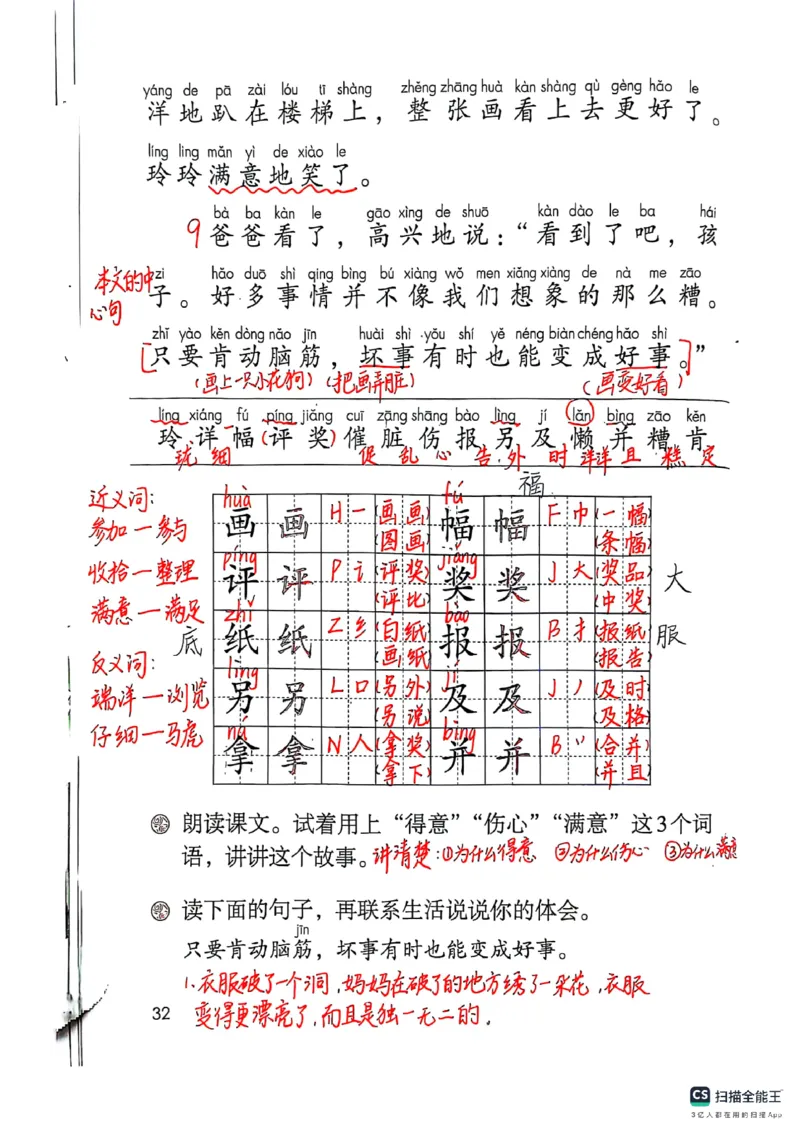 yáng de pā zài lóu tī shàng zhěng zhāng huà kàn shàng qù gèng hǎo le
洋地趴在楼梯上，整张画看上去更好了。
líng ling mǎn yì de xiào le
玲玲满意地笑了。
bà ba kàn le gāo xìng de shuō kàn dào le ba hái
9 爸爸看了，高兴地说：“看到了吧，孩
本文的中心句
zi hǎo duō shì qing bìng bú xiàng wǒ men xiǎng xiàng de nà me zāo
子。好多事情并不像我们想象的那么糟。
zhǐ yào kěn dòng nǎo jīn huài shì yǒu shí yě néng biàn chéng hǎo shì
[只要肯动脑筋，坏事有时也能变成好事。]”
(画上一只小花狗)(把画弄脏) (画变好看)
líng xiáng fú píng jiǎng cuī zāng shāng bào lìng jí lǎn bìng zāo kěn
玲详幅(评奖)催脏伤报另及懒并糟肯
珑 细 促 乱 心 告 外 时 洋洋 且 糕 定
福
近义词：
参加—参与
收拾—整理
满意—满足
反义词：
端详—浏览
仔细—马虎
huà fú
画 画 H 一 (画画) (图画) 幅 幅 F 巾 (一幅) (条幅)
píng jiǎng
评 评 P 讠 (评奖) (评比) 奖 奖 J 大 (奖品) (中奖) 大
zhǐ bào
底 纸 纸 Z 纟 (白纸) (画纸) 报 报 B 扌 (报纸) (报告) 服
lìng jí
另 另 L 口 (另外) (另说) 及 及 J 丿 (及时) (及格)
ná bìng
拿 拿 N 人 (拿奖) (拿下) 并 并 B 丷 (合并) (并且)
朗读课文。试着用上“得意”“伤心”“满意”这3个词
语，讲讲这个故事。讲清楚：①为什么得意 ②为什么伤心 ③为什么满意
读下面的句子，再联系生活说说你的体会。
jīn
只要肯动脑筋，坏事有时也能变成好事。
1.衣服破了一个洞，妈妈在破了的地方绣了一朵花，衣服
变得更漂亮了，而且是独一无二的。
32
CS 扫描全能王
3亿人都在用的扫描App